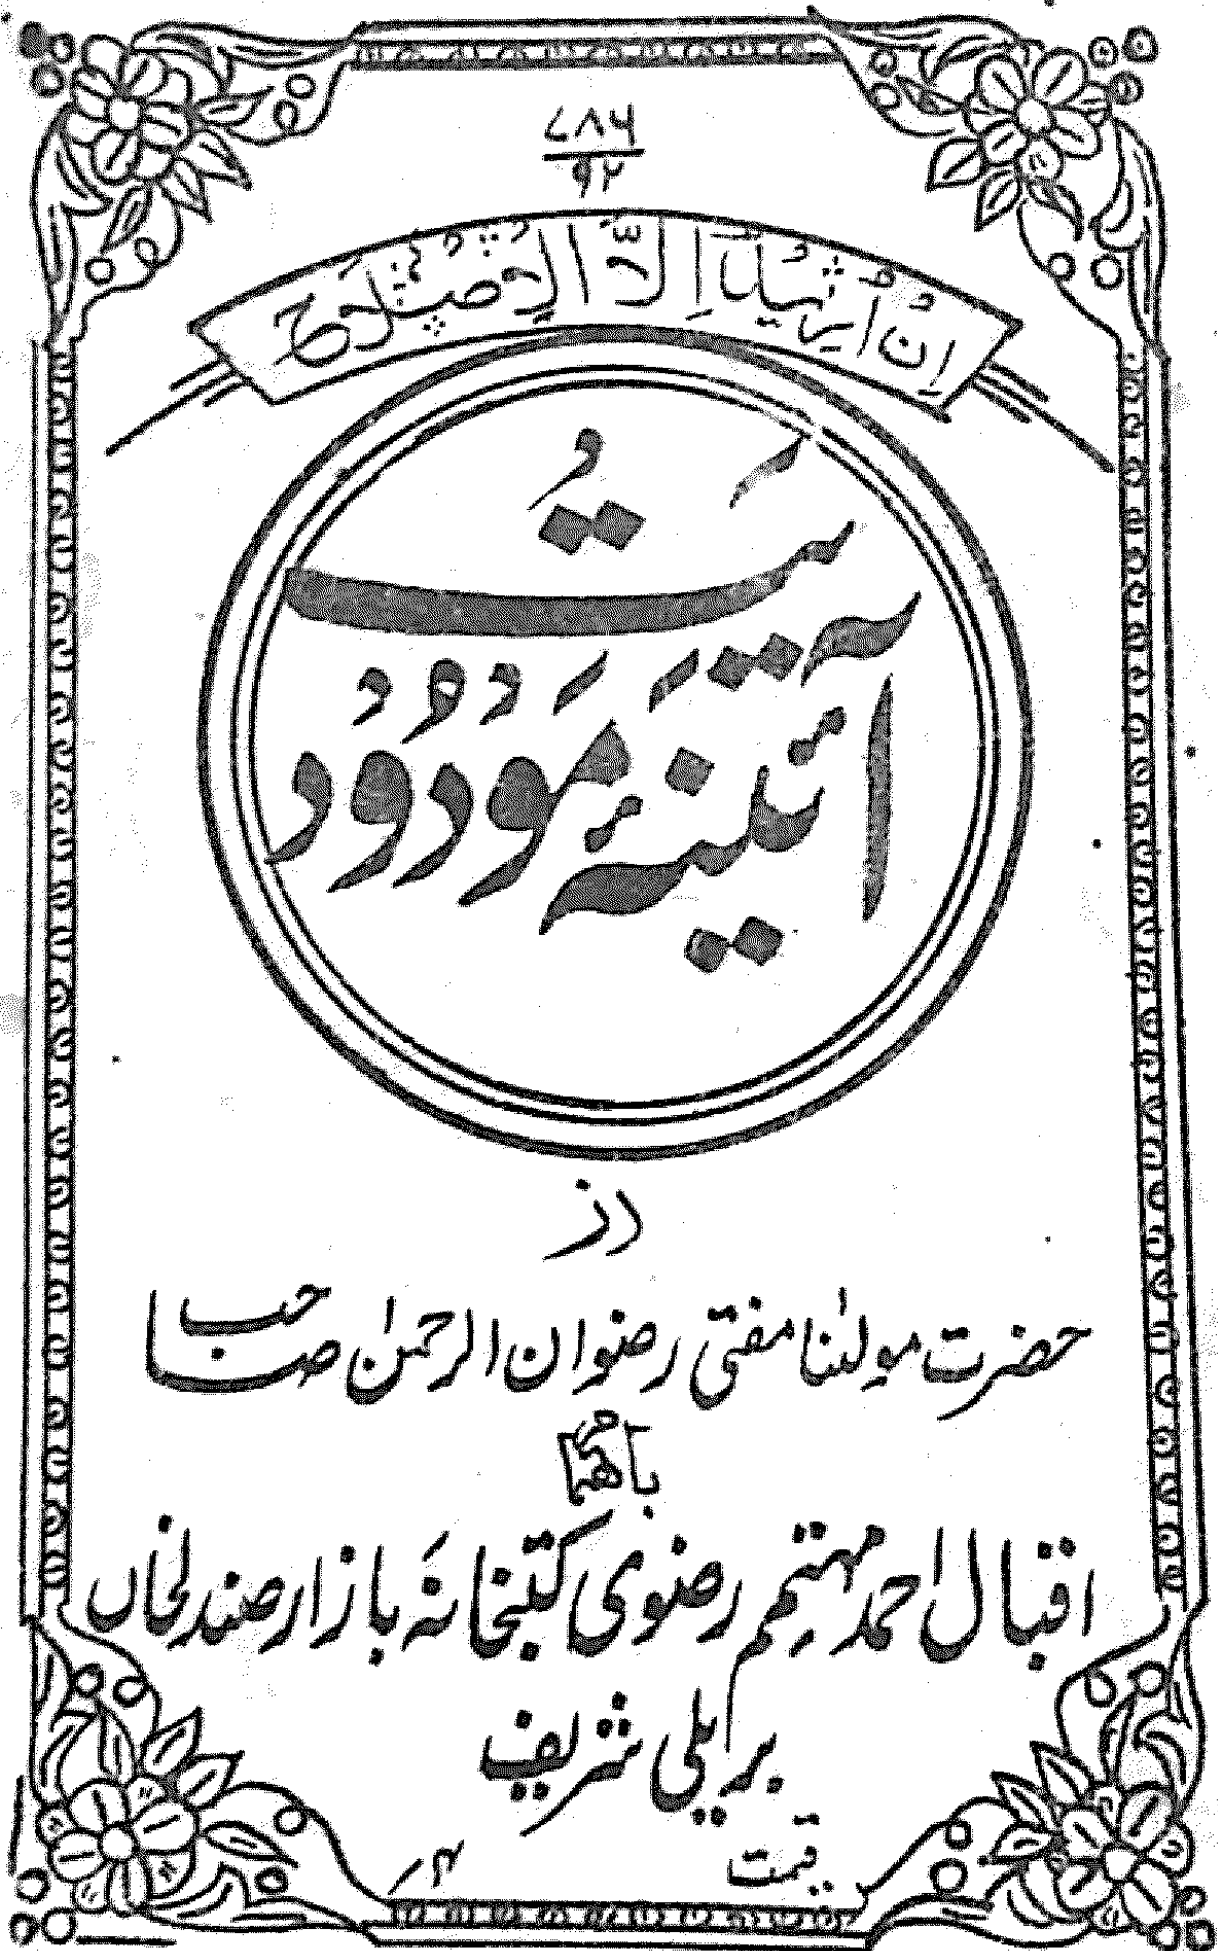 ۷۸۶
۹۲
اِنْ اُرِیْدُ اِلَّا الْاِصْلَاحَ
آئینہ مودودیت
از
حضرت مولٰنا مفتی رضوان الرحمٰن صاحب
باہتمام
اقبال احمد مہتمم رضوی کتبخانہ بازار صندلخاں
بریلی شریف
قیمت ۴؍